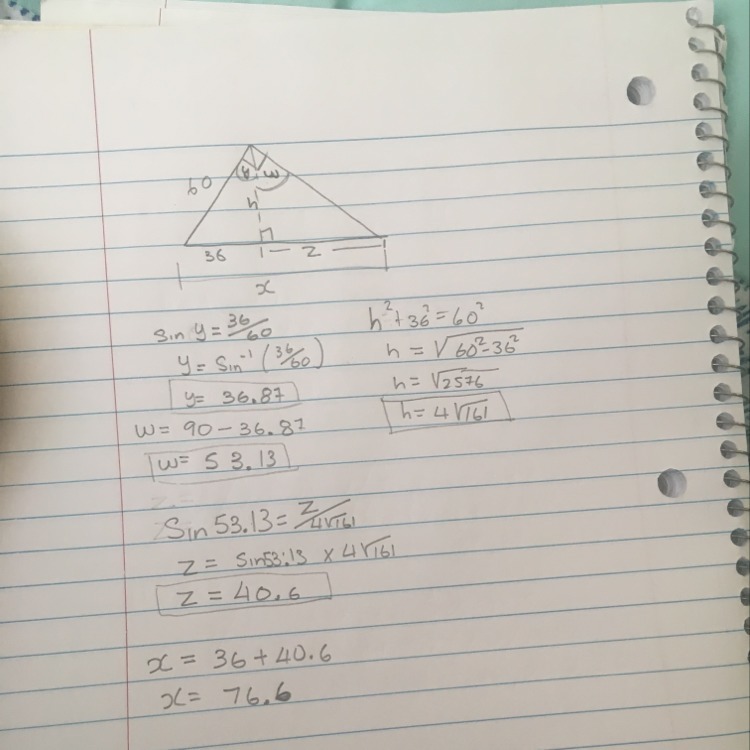 60
y w
h
36 z
x
sin y = 36/60
y = sin⁻¹ (36/60)
y = 36.87
w = 90 - 36.87
w = 53.13
h² + 36² = 60²
h = √60² - 36²
h = √2576
h = 4√161
Sin 53.13 = z/4√161
z = Sin53.13 × 4√161
z = 40.6
x = 36 + 40.6
x = 76.6